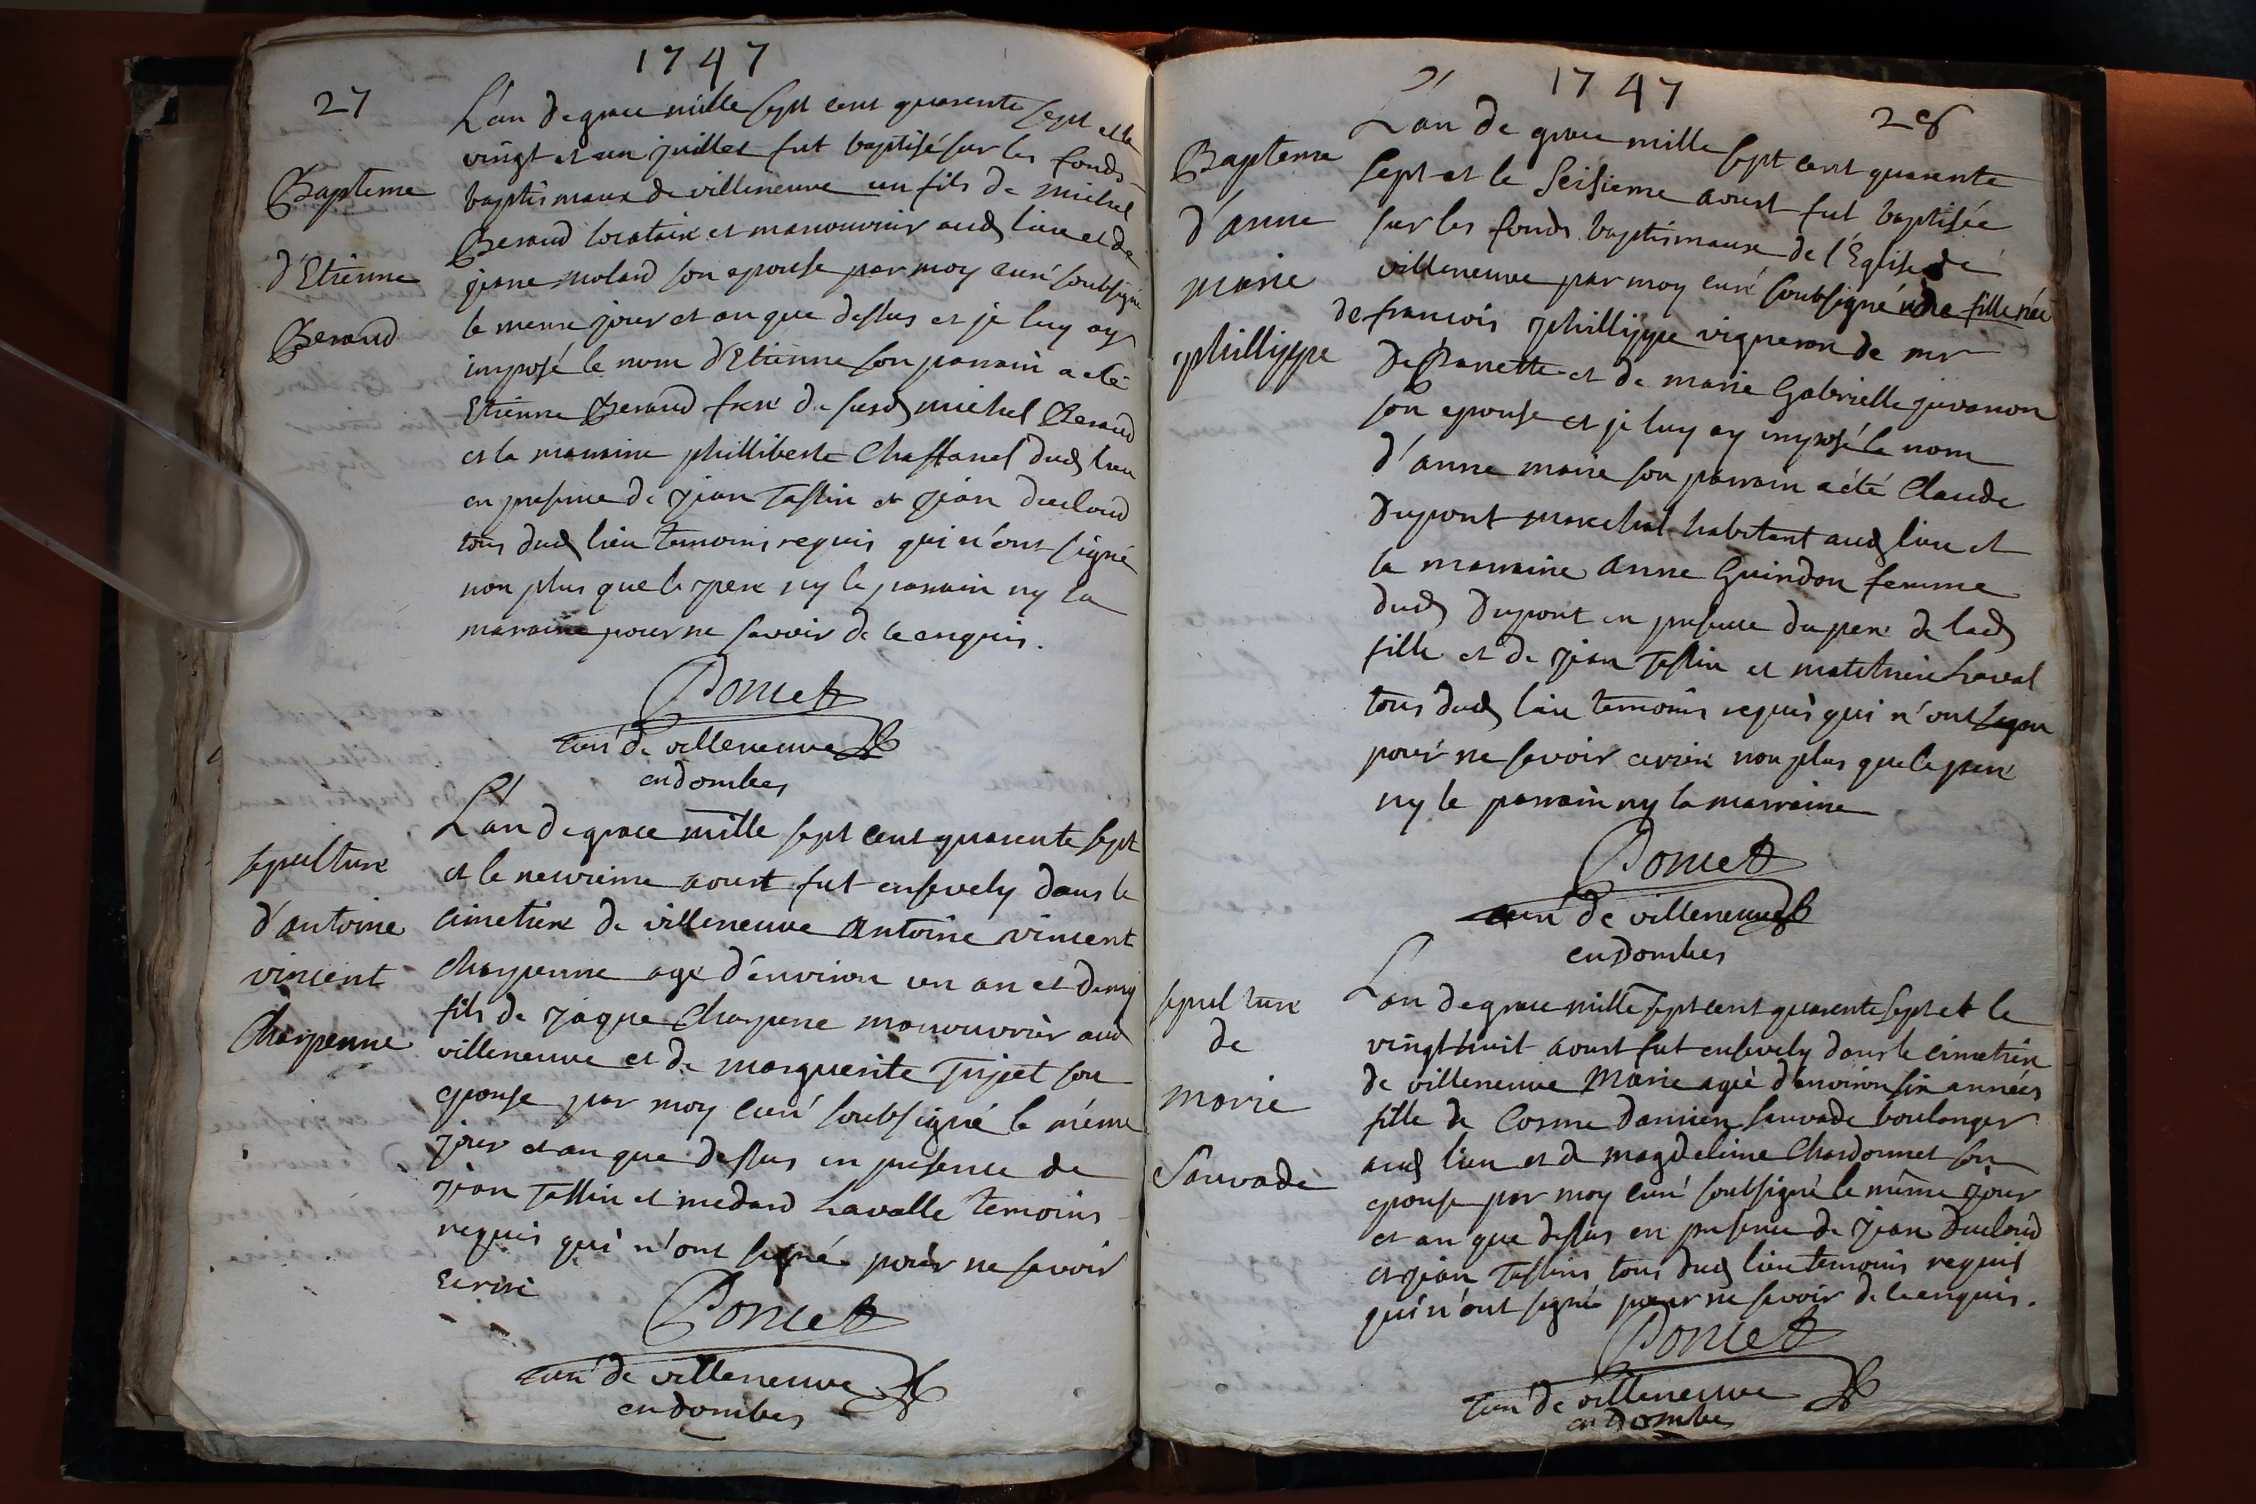 1747
27
L'an de grace mille sept cent quarente sept et le
vingt et un juillet fut baptisé sur les fonds
Bapteme
baptismaux de villeneuve un fils de michel
Beraud locataire et manouvrier aud lieu et de
d'Etienne
jeane molard son epouse par moy curé soubsigné
Beraud
le meme jour et an que dessus et je luy ay
imposé le nom d'Etienne son parrain a eté
Etienne Beraud frere du susd michel Beraud
et la marraine philliberte Chaffanel dud lieu
en presence de jean Tassin et jean Ducloud
tous dud lieu temoins requis qui n'ont signé
non plus que le pere ny le parrain ny la
maraine pour ne savoir de ce enquis.
Poncet
curé de villeneuve
en dombes
L'an de grace mille sept cent quarente sept
sepulture
et le neuvieme aoust fut ensevely dans le
d'antoine
cimetiere de villeneuve Antoine vincent
vincent
Charpenne agé d'environ un an et demy
fils de jaque Charpene manouvrier aud
Charpenne
villeneuve et de marguerite Trijet son
epouse par moy curé soubsigné le méme
jour et an que dessus en presence de
jean Tassin et medard Lavalle temoins
requis qui n'ont signé pour ne savoir
ecrire
Poncet
curé de villeneuve
en dombes
1747
28
L'an de grace mille sept cent quarente
Bapteme
sept et le seisieme aoust fut baptisée
d'anne
sur les fonds baptismaux de l'Eglise de
marie
villeneuve par moy curé soubsigné une fille née
de francois phillippe vigneron de mr
phillippe
De Barrette et de marie Gabrielle juvanon
son epouse et je luy ay imposé le nom
d'anne marie son parrain a été Claude
Dupont marechal habitant aud lieu et
la marraine anne Guindon femme
dud Dupont en presence du pere de lad
fille et de jean Tassin et mathieu Laval
tous dud lieu temoins requis qui n'ont signé
pour ne savoir ecrire non plus que le pere
ny le parrain ny la marraine
Poncet
curé de villeneuve
en Dombes
L'an de grace mille sept cent quarente sept et le
sepulture
vingt huit aoust fut ensevely dans le cimetiere
de
de villeneuve Marie ageé d'environ six années
marie
fille de Cosme Damien Sauvade boulanger
aud lieu et de magdeleine Chardonnet son
Sauvade
epouse par moy curé soubsigné le même jour
et an que dessus en presence de jean Ducloud
et jean Tassin tous dud lieu temoins requis
qui n'ont signé pour ne savoir de ce enquis.
Poncet
curé de villeneuve
en dombes